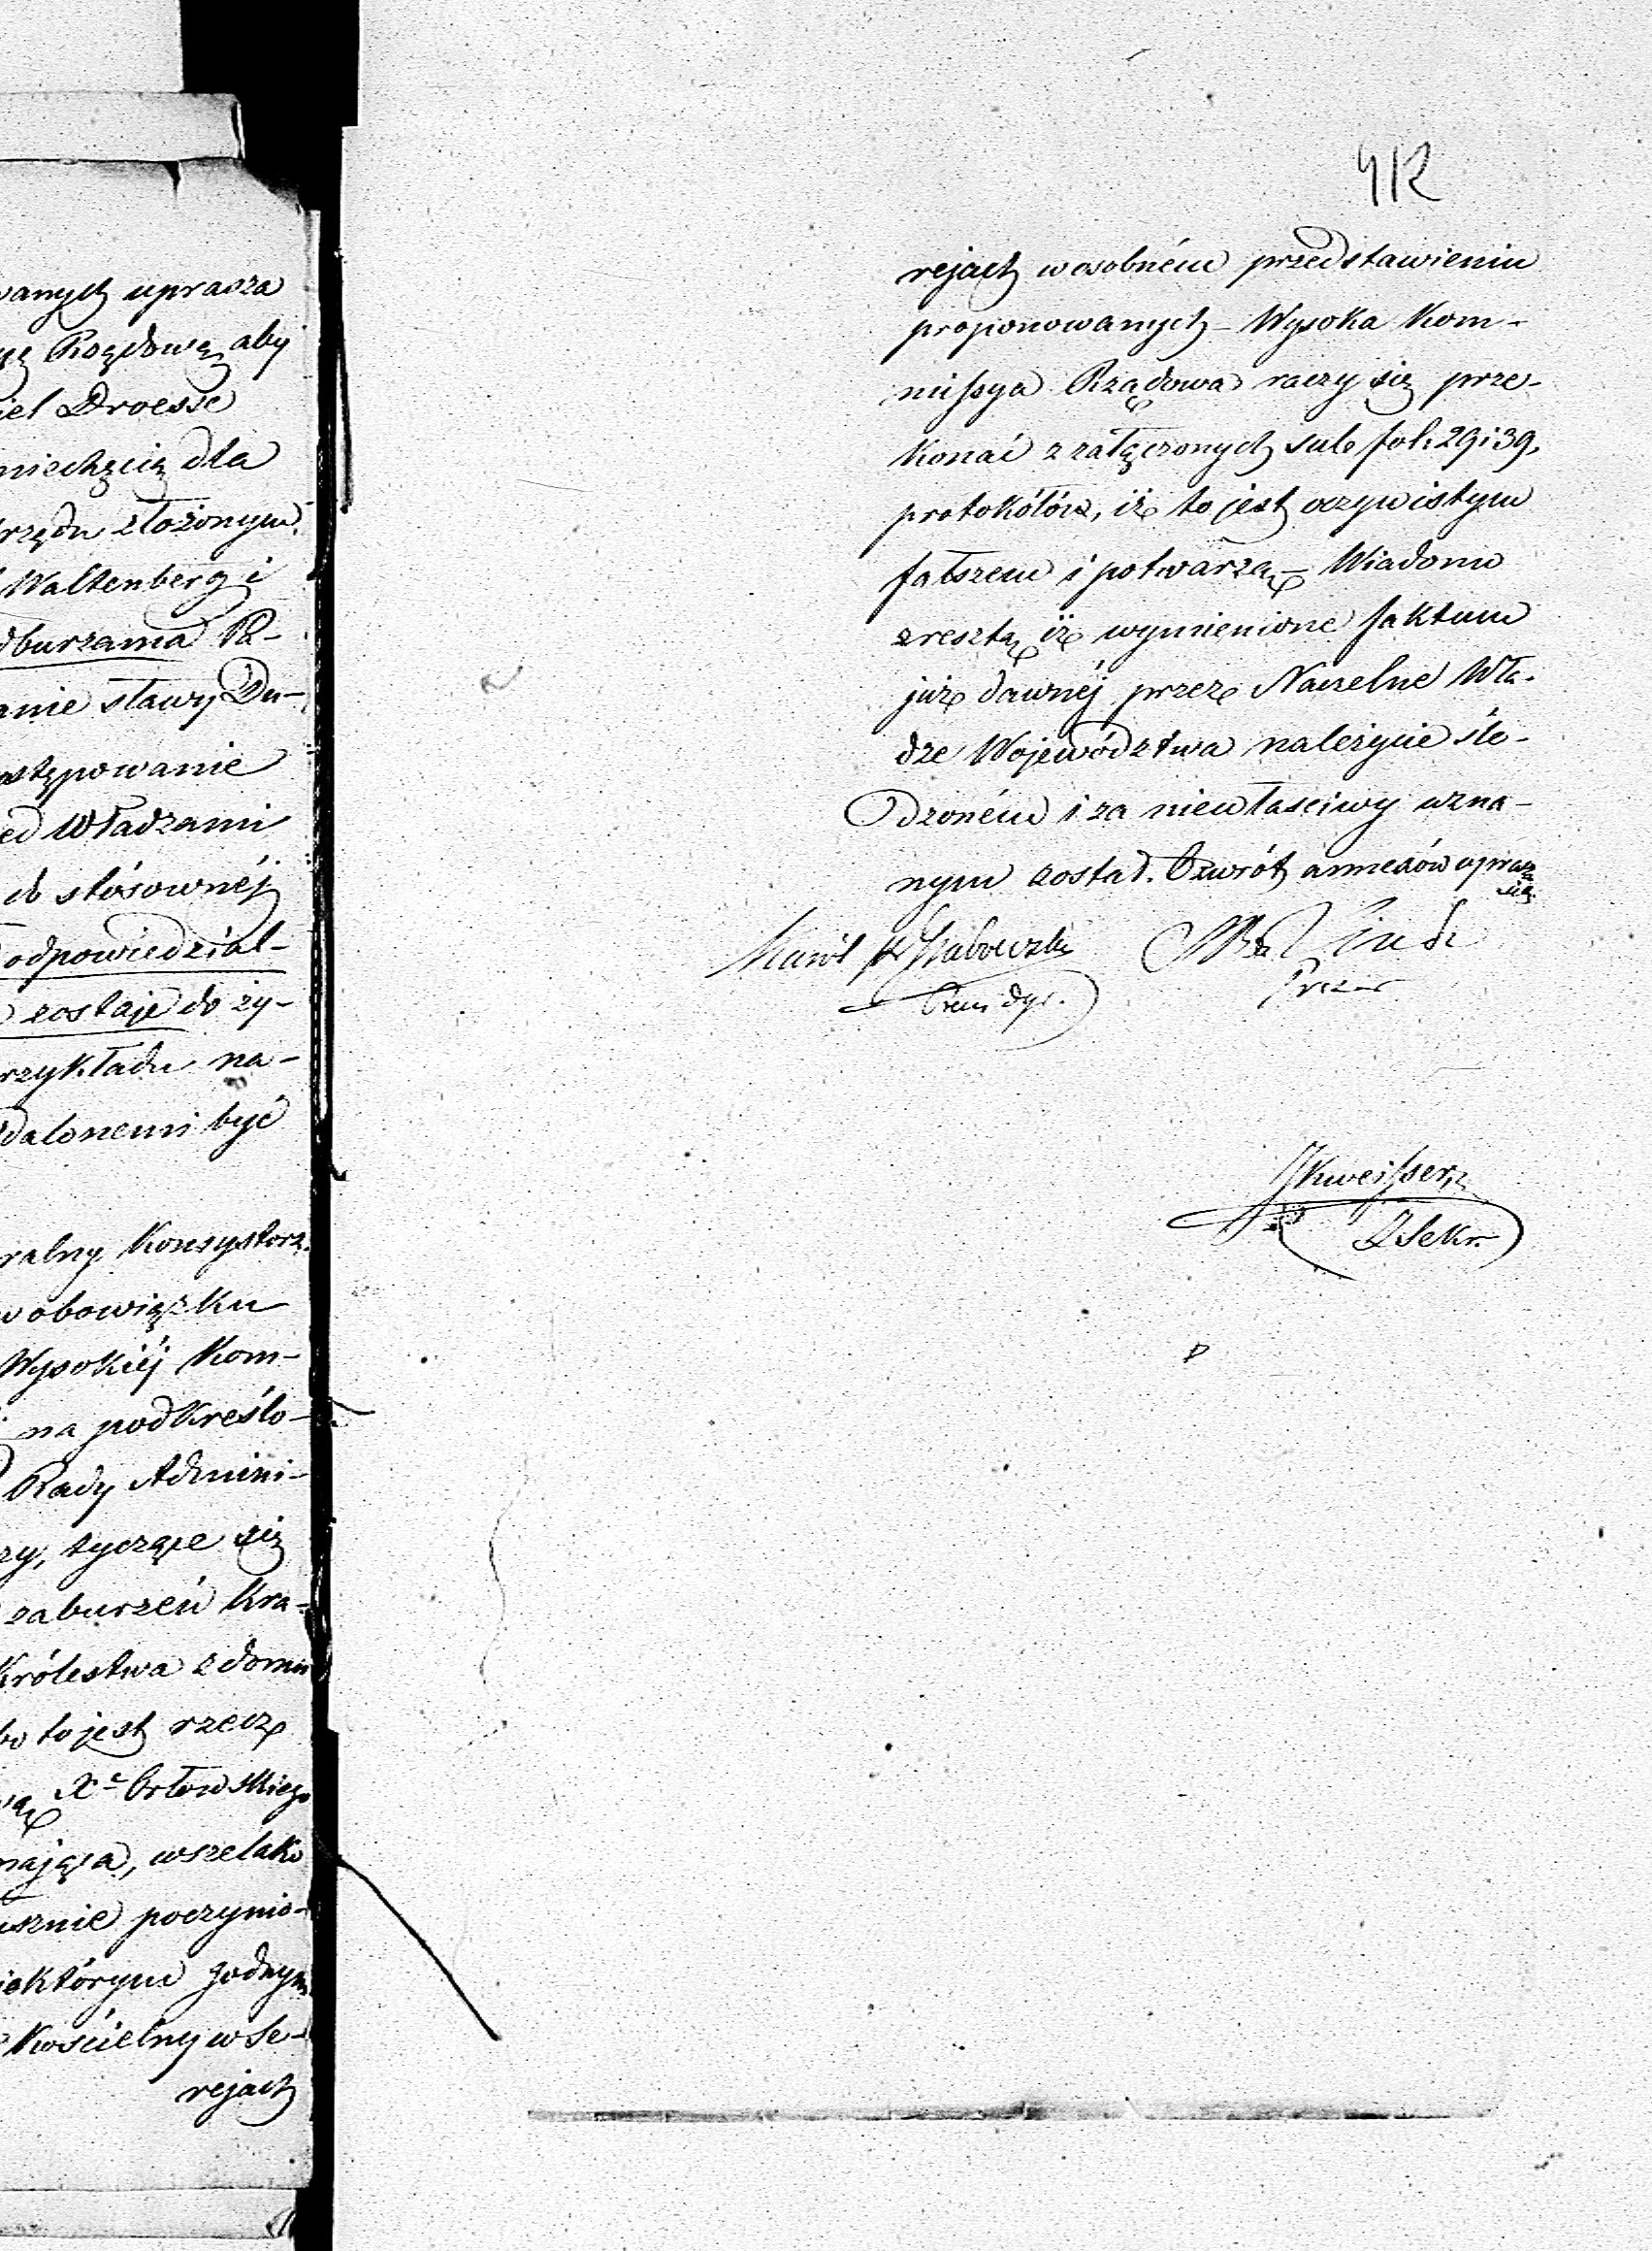 vanych uprasza
Rządową aby
iel Droesse
niechęcią dla
rzędu złożonym
Waltenberg i
dburzania Pa-
anie sławy Du-
ostępowanie
ed Władzami
do stósownéj
odpowiedzial-
zostaje do ży-
rzykładu na-
dalonemi być
ralny Konsystorz
w obowiązku
Wysokiéj Kom-
na podkreślo-
Rady Admini-
zy, tyczące się
zaburzeń Kra-
Królestwa z domu
bo to jest rzecz
Xa Orłowskiego
mająca, wszelako
usznie poczynio-
iektórym godnym
Kościelny w Se-
rejach
412
rejach w osobném przedstawieniu
proponowanych - Wysoka Kom-
missya Rządowa raczy się prze-
konać z załączonych sub fol: 29 i 39.
protokółów, iż to jest oczywistym
fałszem i potwarzą - Wiadomo
zresztą iż wymienione faktum
już dawnéj przez Naczelne Wła-
dze Województwa należycie śle-
dzoném i za niewłasciwy uzna-
nym został. Ozwrót annexów uprasza
się.
Karól Grabowski
Prezes
Z Sekr.